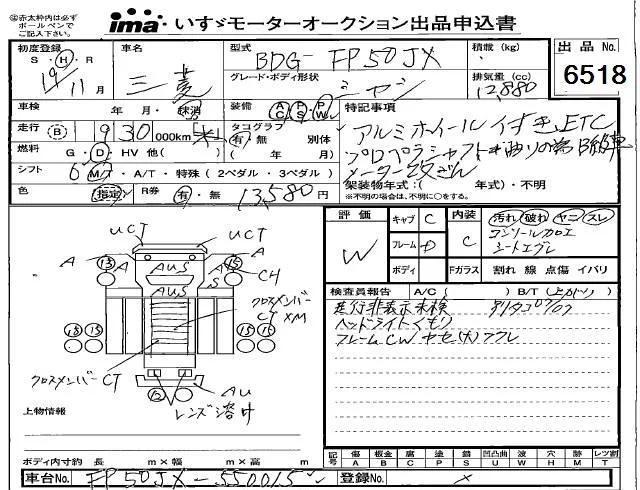 ④赤太枠内は必ず
ボールペンで
ご記入下さい。
ima いすゞモーターオークション出品申込書
初度登録 車名 型式 積載(kg) 出品No.
S・H・R 三菱 BDG-FP50JX 6518
19年11月 グレード・ボディ形状 排気量(cc)
シャシ 12,880
車検 年・月・抹消 装備 AC PS PW 特記事項
走行 B 930 000km タコグラフ 有・無 別体 アルミホイール付き、ETC
燃料 G・D・HV 他( ) ( 年 月) プロペラシャフト曲りの為B始車
シフト 6 M/T・A/T・特殊(2ペダル・3ペダル) メーター改ざん
架装物年式:( 年式)・不明
※不明の場合は、不明に○をする。
色 指定 R券 有・無 13,580円
評価 キャブ C 内装 汚れ 破れ ヤニ スレ
W フレーム D C コンソールカロエ
ボディ Fガラス シートエグレ
割れ 線 点傷 イバリ
検査員報告 A/C( ) B/T(上がり)
走行非表示未検
ヘッドライトくもり
フレームCWヤセ(大)フクレ
UCT UCT
A A 13 15 A A
AUS CH
AUS
クロスメンバー
CT XM
18 15 15 15
クロスメンバーCT
12 AU
レンズ溶け
上物情報
ボディ内寸約 長 m×幅 m×高 m
記号 傷 板金 腐 塗 錆 凹 凸 曲 波 穴 跡 レツ割
A B C P S U W H M T
車台No. FP50JX-550015 登録No.